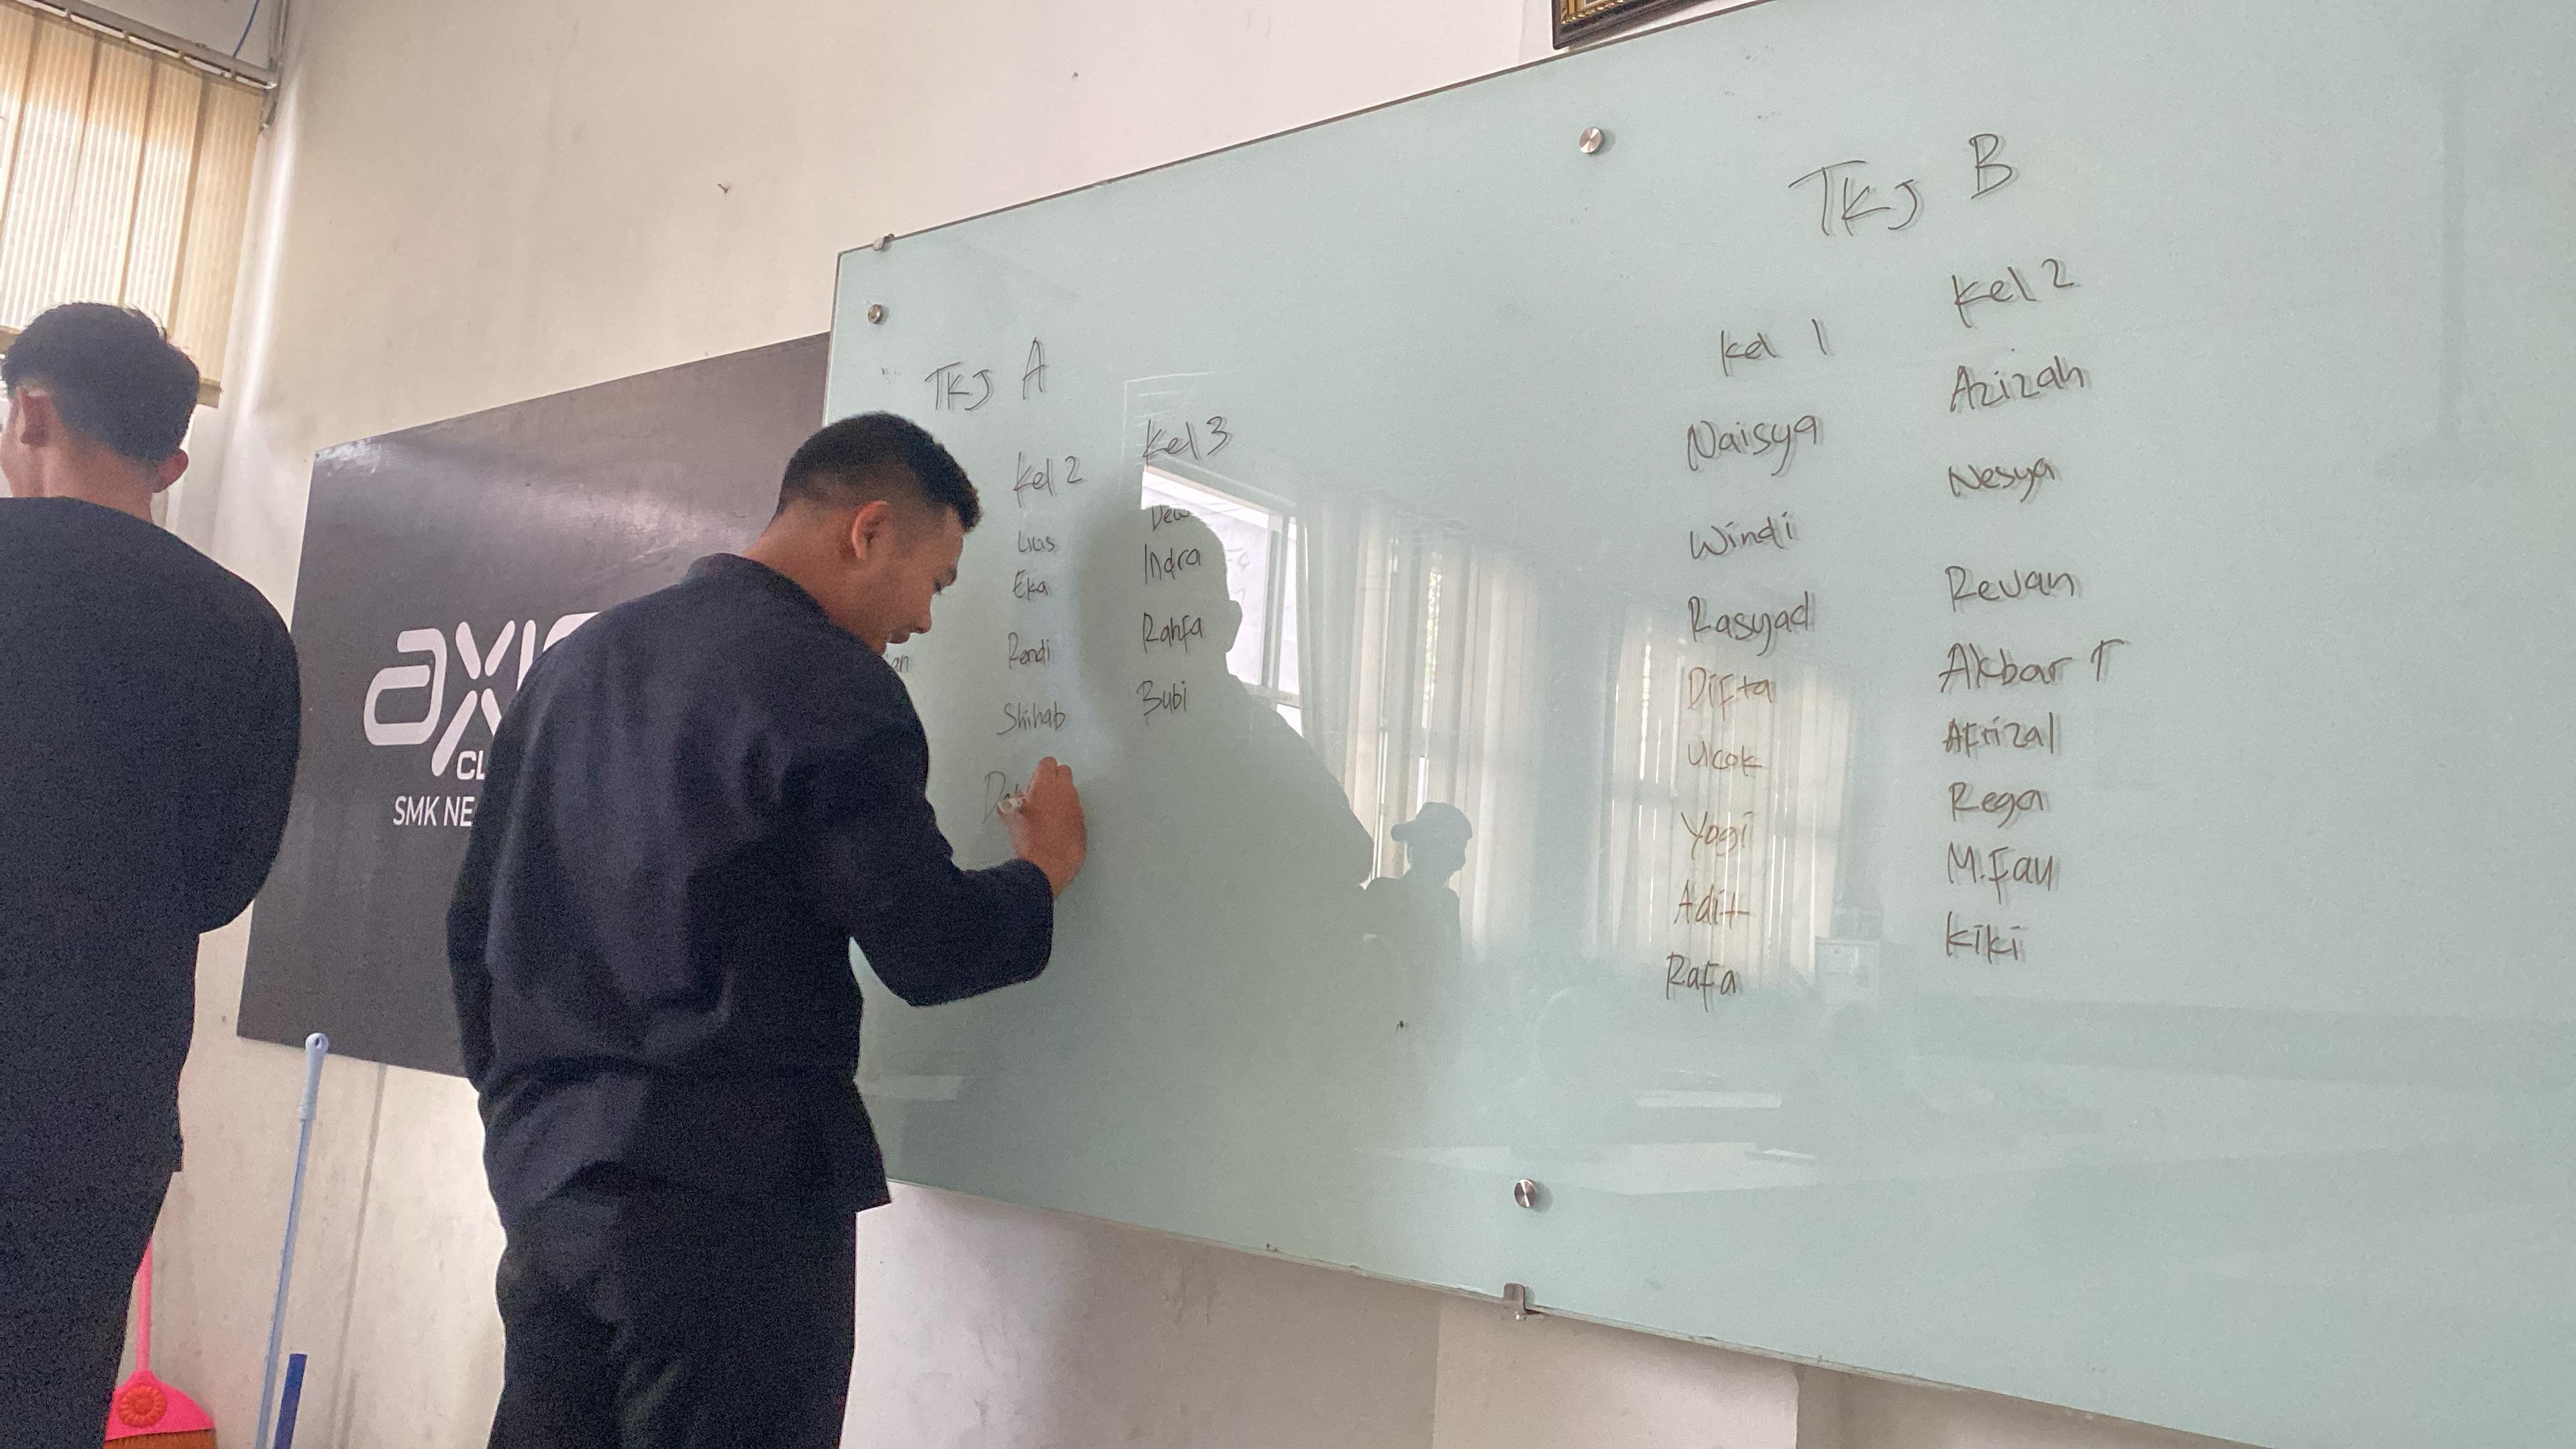 SMK NE
TKJ A
Kel 2
Eka
Rendi
Shihab
Kel 3
Indra
Rahfa
Bubi
TKJ B
Kel 1
Naisya
Windi
Rasyad
Difta
Ucok
Yogi
Adit
Rafa
Kel 2
Azizah
Nesya
Revan
Akbar T
Afrizal
Rega
M.Fau
Kiki